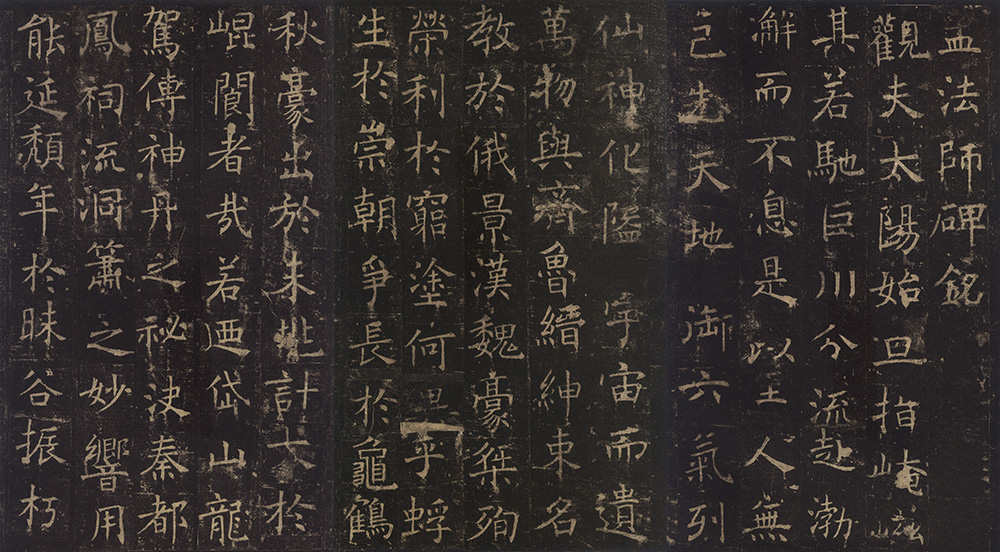 孟法師碑銘
觀夫太陽始旦指崦嵫
其若馳巨川分流赴渤
澥而不息是以至人無
己先天地御六氣列
仙神化隘宇宙而遺
萬物與齊魯縉紳束名
教於俄景漢魏豪桀殉
榮利於窮塗何異乎蜉
生於崇朝爭長於龜鶴
秋豪出於未兆計大於
崐閬者哉若迺岱山龍
駕傳神丹之祕決秦都
鳳祠流洞簫之妙響用
能延頹年於昧谷振朽